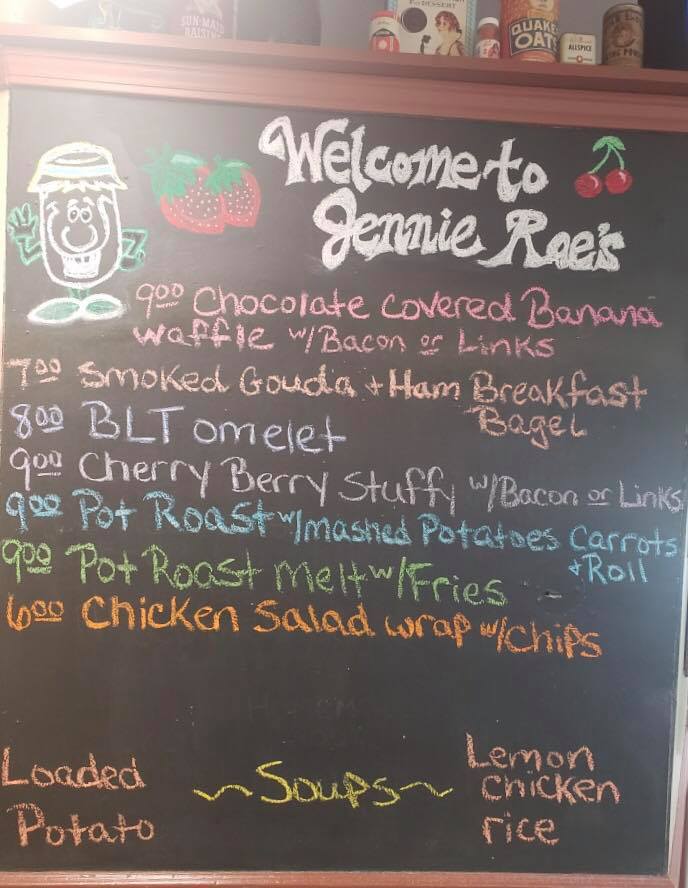 SUN-MAID
RAISINS
DESSERT
QUAKER
OATS
ALLSPICE
Welcome to
Jennie Rae's
900 Chocolate covered Banana
waffle w/Bacon or Links
700 Smoked Gouda + Ham Breakfast
Bagel
800 BLT omelet
900 Cherry Berry Stuffy w/Bacon or Links
900 Pot Roast w/mashed Potatoes Carrots
+ Roll
900 Pot Roast melt w/Fries
600 Chicken Salad wrap w/chips
Loaded
Potato
~Soups~
Lemon
Chicken
rice